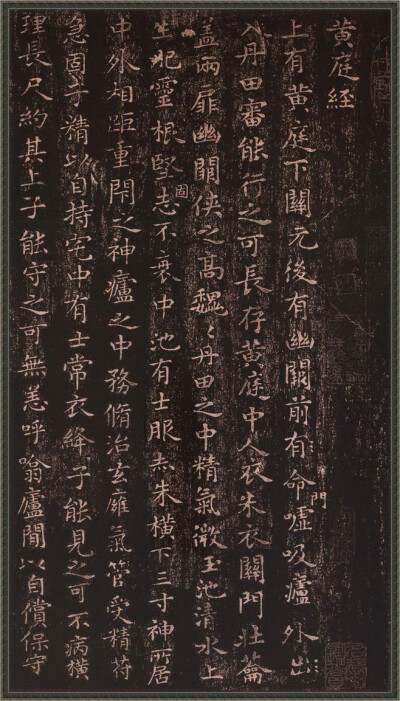 黄庭経
上有黄庭下關元後有幽闕前有命門噓吸廬外出
入丹田審能行之可長存黄庭中人衣朱衣關門壯籥
盖兩扉幽闕俠之高魏〻丹田之中精氣微玉池清水上
生肥靈根堅固志不衰中池有士服赤朱橫下三寸神所居
中外相距重閇之神廬之中務脩治玄廱氣管受精苻
急固子精以自持宅中有士常衣絳子能見之可不病橫
理長尺約其上子能守之可無恙呼噏廬間以自償保守